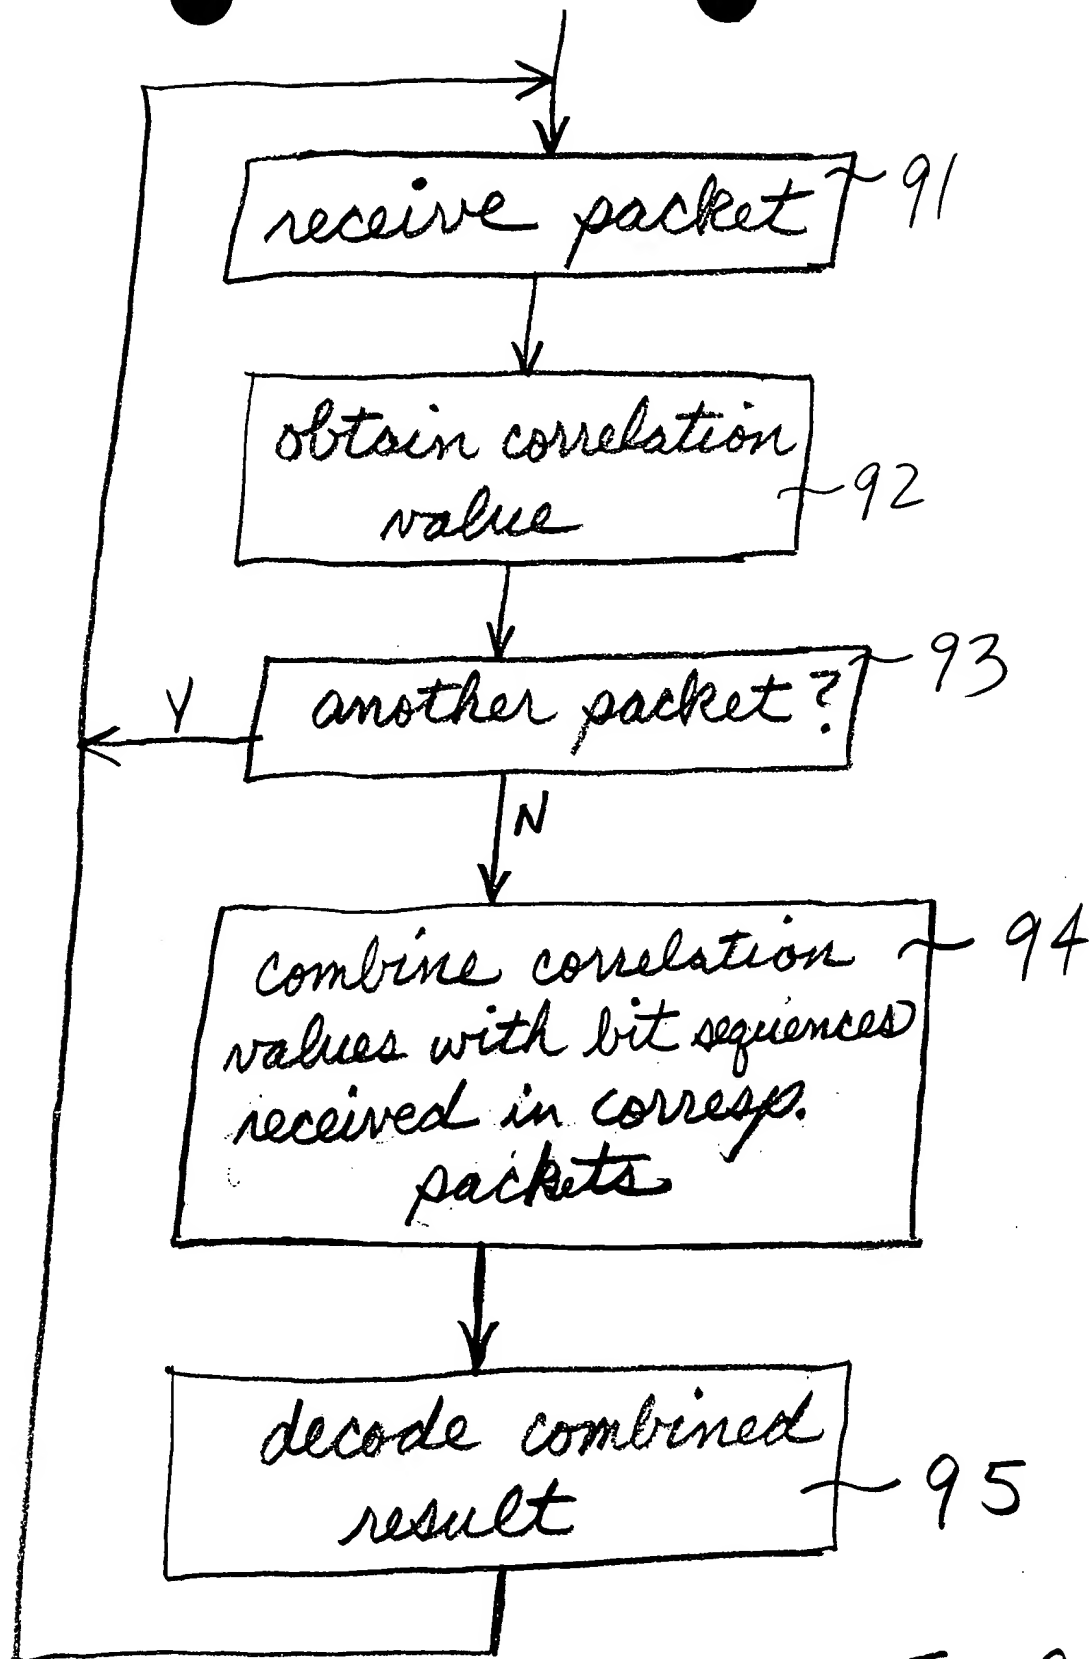 receive packet
91
obtain correlation
value
92
another packet?
93
Y
N
combine correlation
values with bit sequences
received in corresp.
packets
94
decode combined
result
95